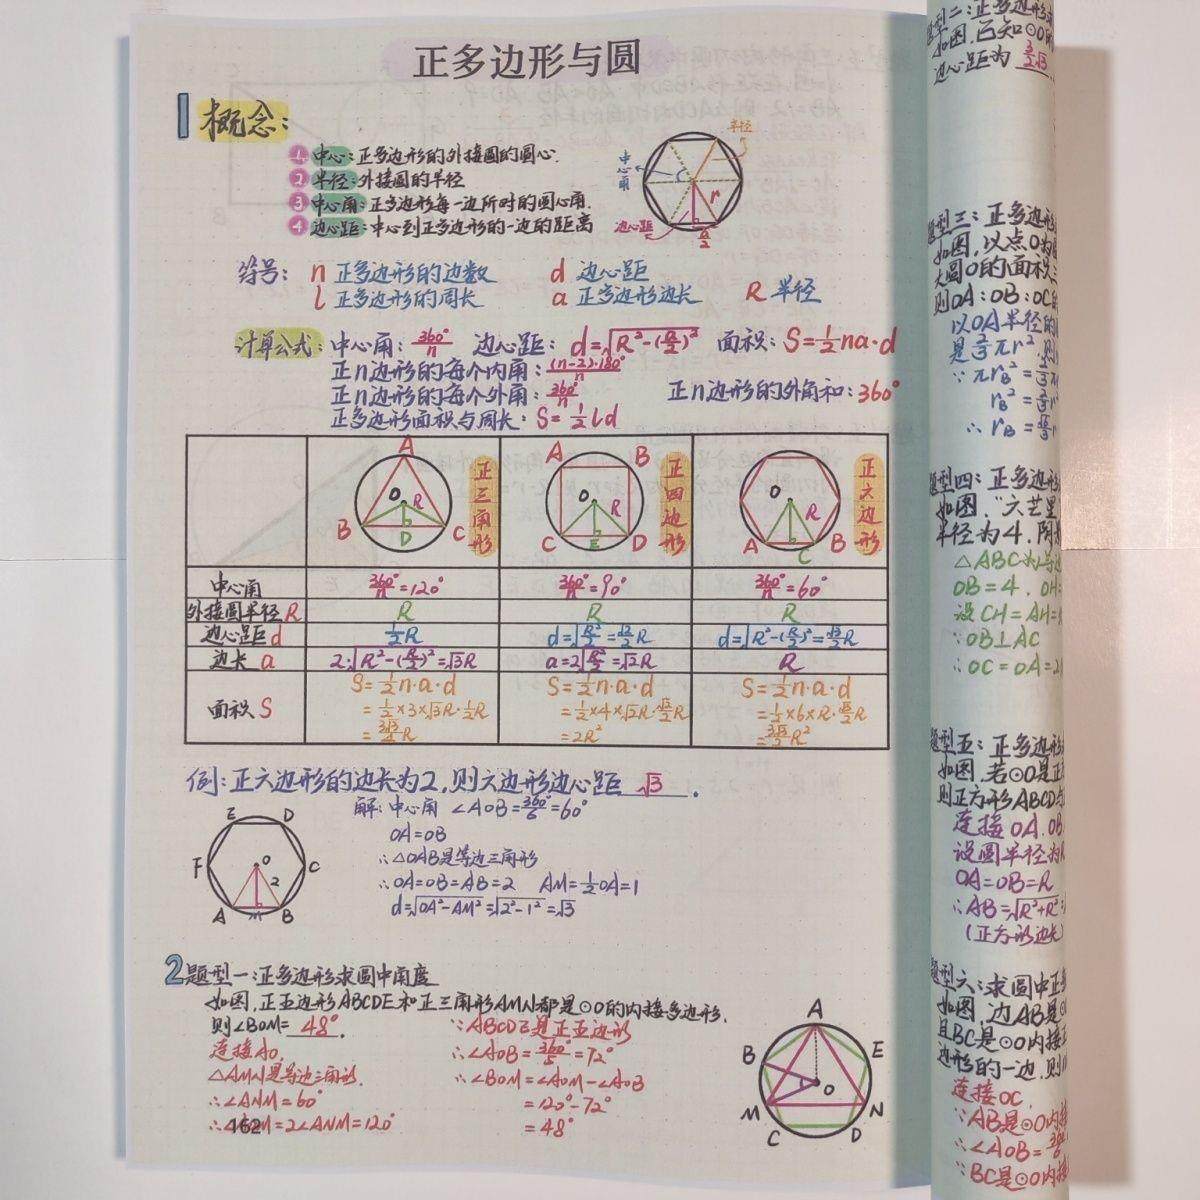 正多边形与圆
1 概念：
① 中心：正多边形的外接圆的圆心.
② 半径：外接圆的半径
③ 中心角：正多边形每一边所对的圆心角.
④ 边心距：中心到正多边形的一边的距离
半径
中心角
r
边心距
a/2
符号： n 正多边形的边数 d 边心距
l 正多边形的周长 a 正多边形边长 R 半径
计算公式：中心角：360°/n 边心距：d=√(R²-(a/2)²) 面积：S=½na·d
正n边形的每个内角：(n-2)·180°/n
正n边形的每个外角：360°/n 正n边形的外角和：360°
正多边形面积与周长：S=½ld
A O R B D C 正三角形
A B O R C E D 正四边形
O R A C B 正六边形
中心角 360°/n=120° 360°/n=90° 360°/n=60°
外接圆半径R R R R
边心距d ½R d=√(R²/2)=√2/2R d=√(R²-(R/2)²)=√3/2R
边长 a 2·√(R²-(R/2)²)=√3R a=2√(R²/2)=√2R R
面积 S S=½n·a·d S=½n·a·d S=½n·a·d
=½×3×√3R·½R =½×4×√2R·√2/2R =½×6×R·√3/2R
=3√3/4R =2R² =3√3/2R²
例：正六边形的边长为2，则六边形边心距 √3 .
解：中心角 ∠AOB=360°/6=60°
OA=OB
∴△OAB是等边三角形
∴OA=OB=AB=2 AM=½OA=1
d=√(OA²-AM²)=√(2²-1²)=√3
E D
F O C
2
A M B
2 题型一：正多边形求圆中角度
如图，正五边形ABCDE和正三角形AMN都是⊙O的内接多边形，
则∠BOM= 48° .
连接AO，
△AMN是等边三角形.
∴∠ANM=60°
∴∠AOM=2∠ANM=120°
162
∵ABCDE是正五边形
∴∠AOB=360°/5=72°
∴∠BOM=∠AOM-∠AOB
=120°-72°
=48°
A
B E
O
M N
C D
题型二：正多边形
如图，已知⊙O的
边心距为 3/2√3
题型三：正多边形
如图，以点O为圆
大圆O的面积三
则OA：OB：OC
以OA半径的
∴ rB
题型四：正多边形
如图，“六艺里
半径为4，阴
△ABC为等边
OB=4，OH=
设CH=AH=
∵OB⊥AC
∴OC=OA=2
题型五：正多边形
如图，若⊙O是正
则正方形ABCD与
连接OA，OB
设圆半径为R
OA=OB=R
∴AB=√(R²+R²)
(正方形边长)
题型六：求圆中正
如图，边AB是⊙
且BC是⊙O内接
边形的一边，则
连接OC，
∵AB是⊙O内接
∴∠AOB=
∵BC是⊙O内接